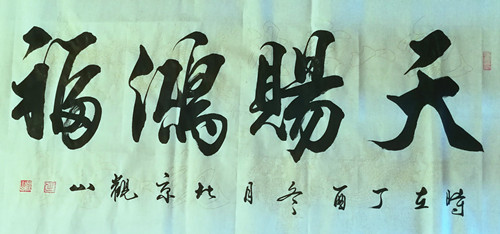 天賜鴻福
時在丁酉冬月北京觀山